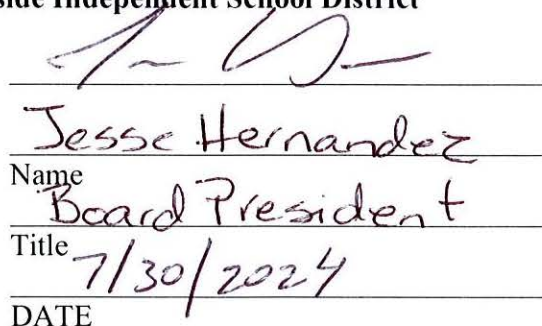 Independent School District
Jesse Hernandez
Name
Board President
Title
7/30/2024
DATE